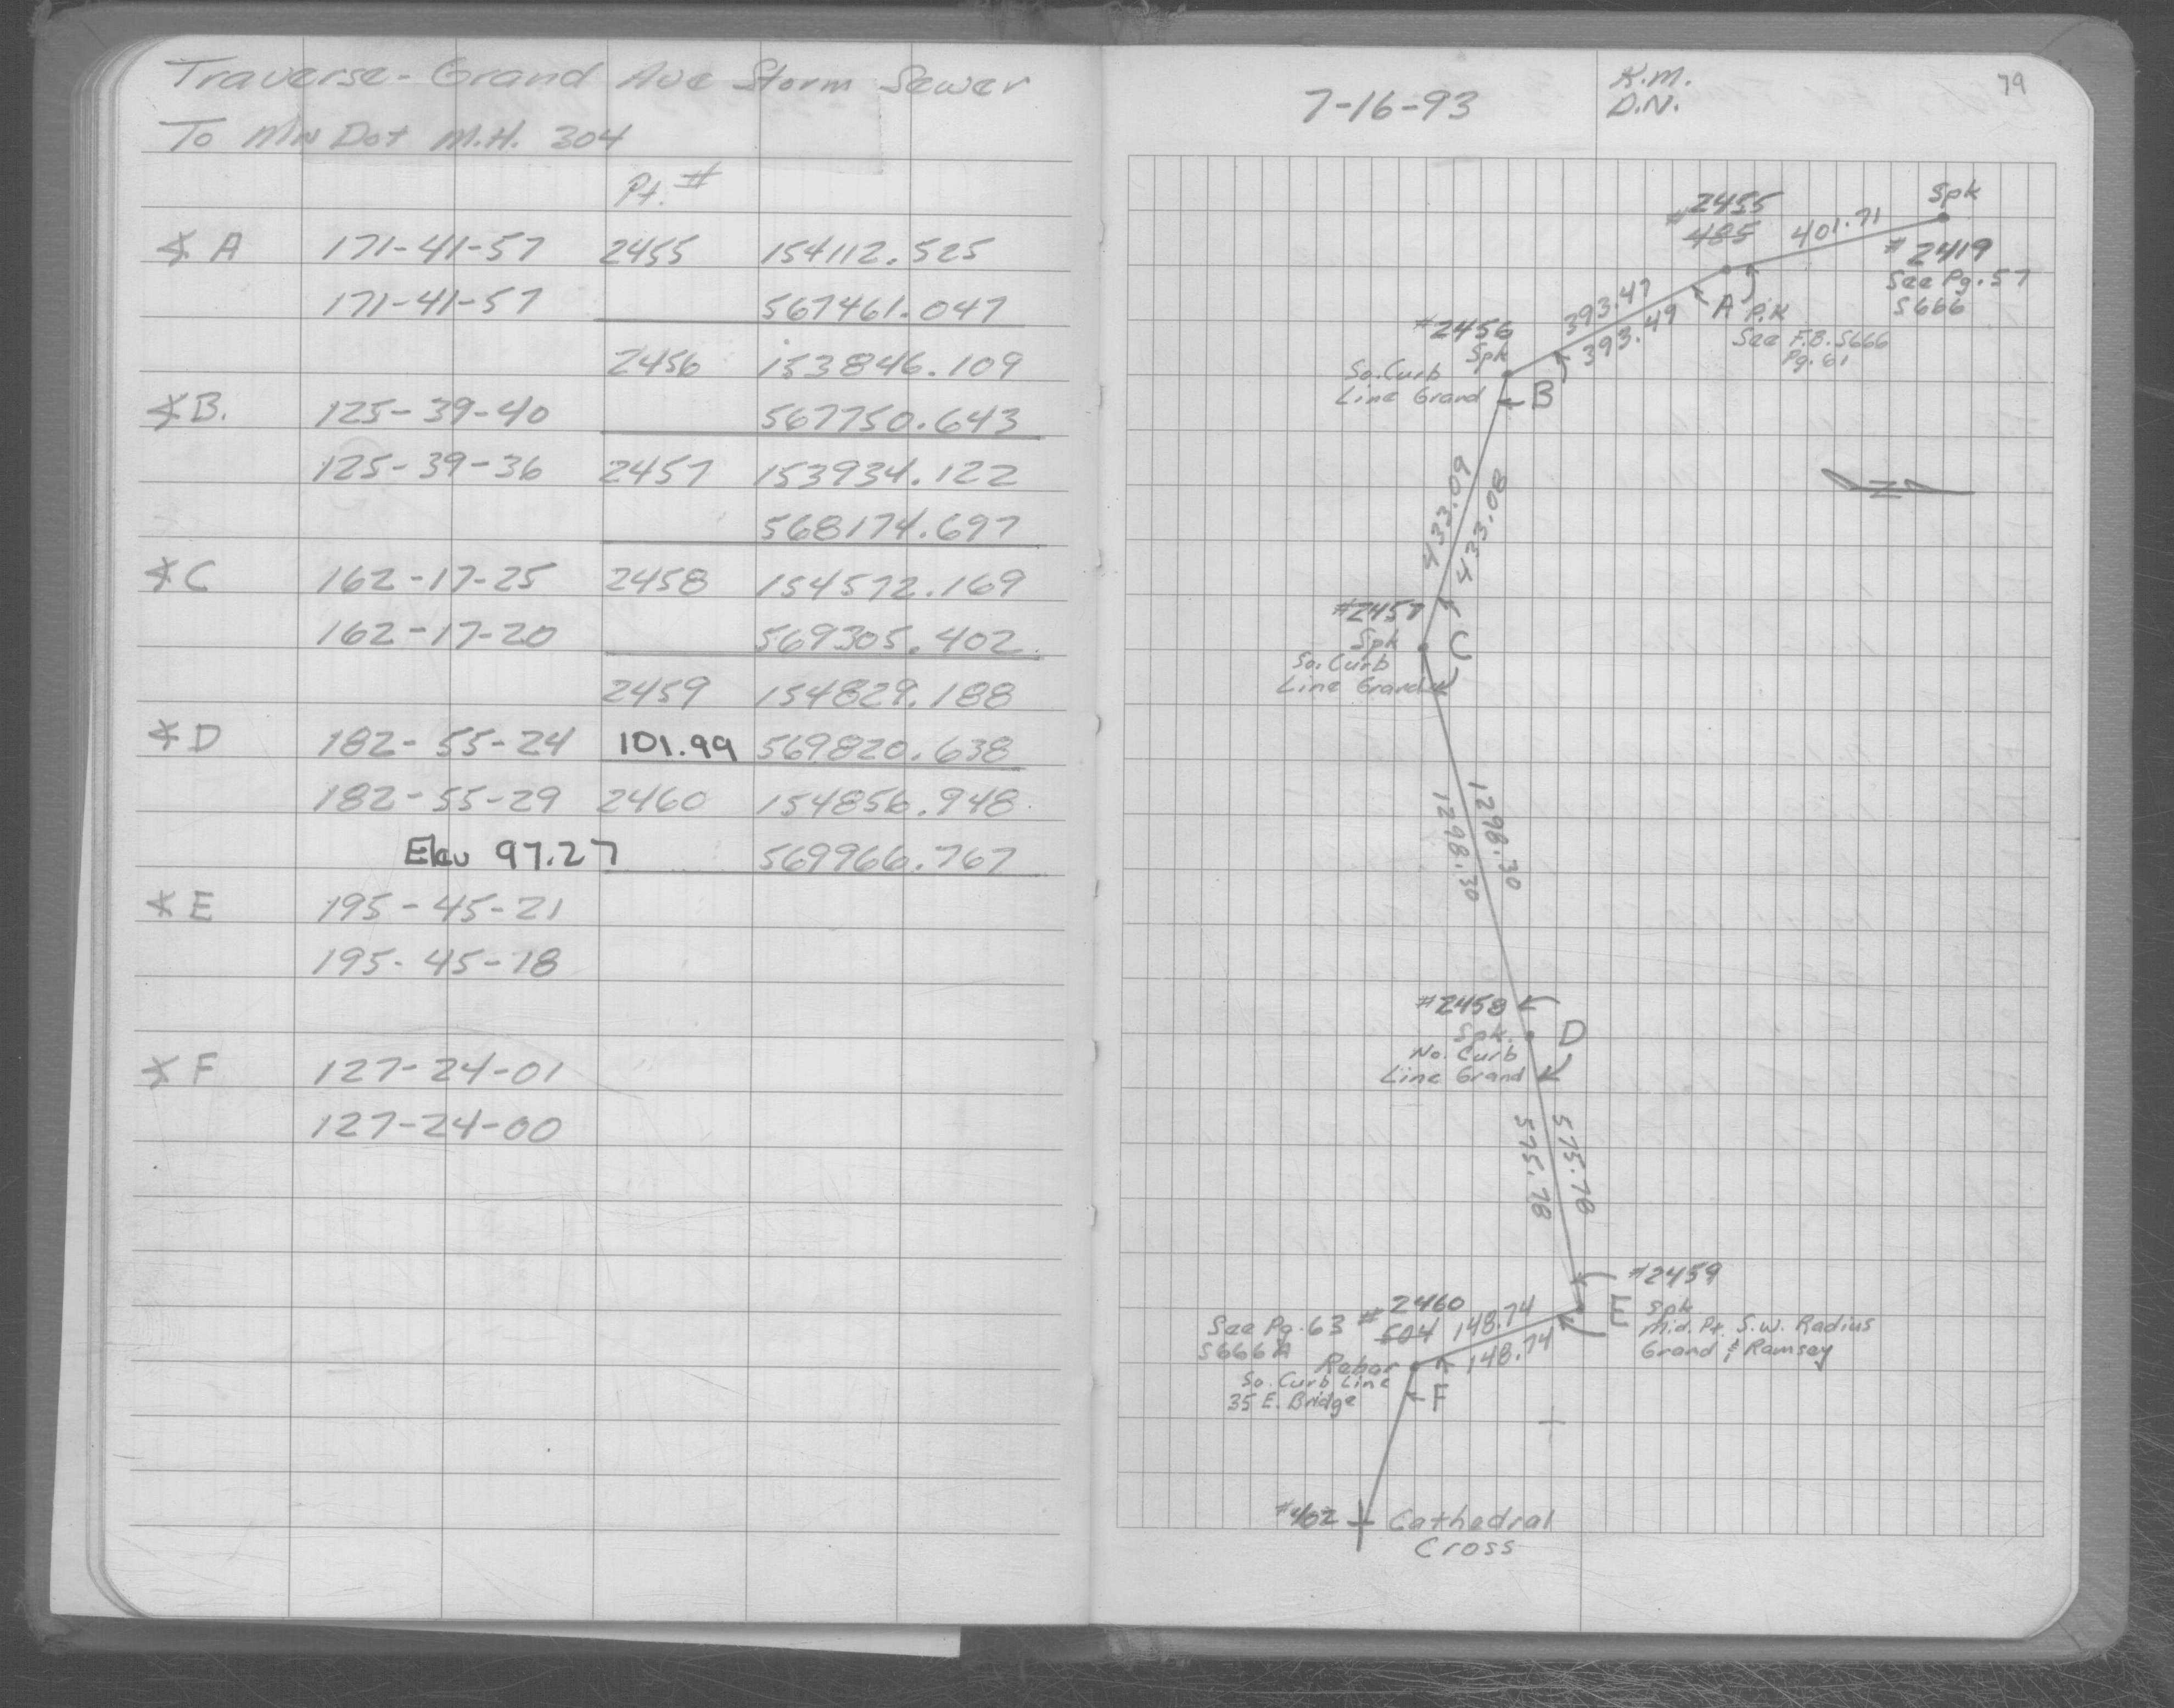 Traverse - Grand Ave Storm Sewer
To MN Dot M.H. 304
Pt. #
∡ A 171-41-57 2455 154112.525
171-41-57 567461.047
2456 153846.109
∡ B. 125-39-40 567750.643
125-39-36 2457 153934.122
568174.697
∡ C 162-17-25 2458 154572.169
162-17-20 569305.402
2459 154829.188
∡ D 182-55-24 101.99 569820.638
182-55-29 2460 154856.948
Elev 97.27 569966.767
∡ E 195-45-21
195-45-18
∡ F 127-24-01
127-24-00
7-16-93
K.M.
D.N.
79
Spk
#2455
485
401.71
#2419
See Pg. 57
5666
A
P.K
See F.B. 5666
Pg. 61
393.47
393.49
#2456
Spk
So. Curb
Line Grand
B
N
433.09
433.08
#2457
Spk
So. Curb
Line Grand
C
1298.30
1298.30
#2458
Spk.
No. Curb
Line Grand
D
575.78
575.78
#2459
E
Spk
Mid. Pt. S.W. Radius
Grand & Ramsey
#2460
504
148.74
148.74
See Pg. 63
5666A
Rebar
So. Curb Line
35 E. Bridge
F
#402
Cathedral
Cross